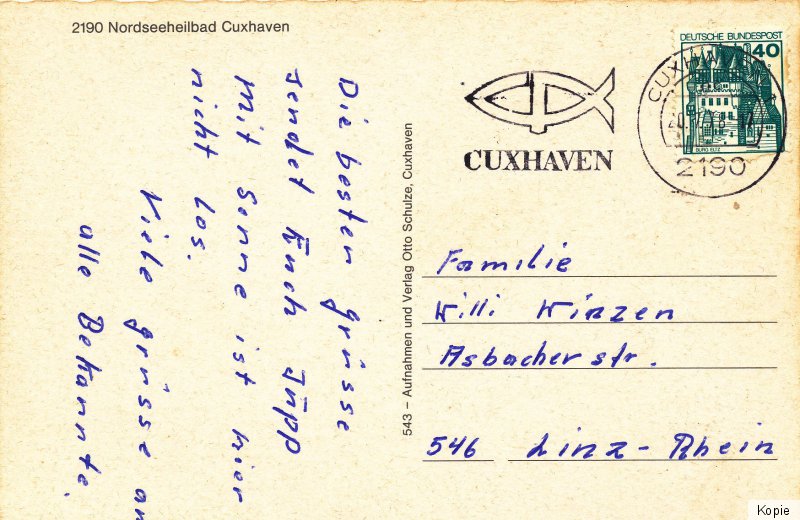 2190 Nordseeheilbad Cuxhaven
Die besten grüsse
sendet Euch Jüpp
Mit Sonne ist hier
nicht los.
Viele grüsse an
alle Bekannte.
543 – Aufnahmen und Verlag Otto Schulze, Cuxhaven
CUXHAVEN
DEUTSCHE BUNDESPOST
40
BURG ELTZ
2190
Familie
Willi Winzen
Asbacherstr.
546 Linz-Rhein
Kopie